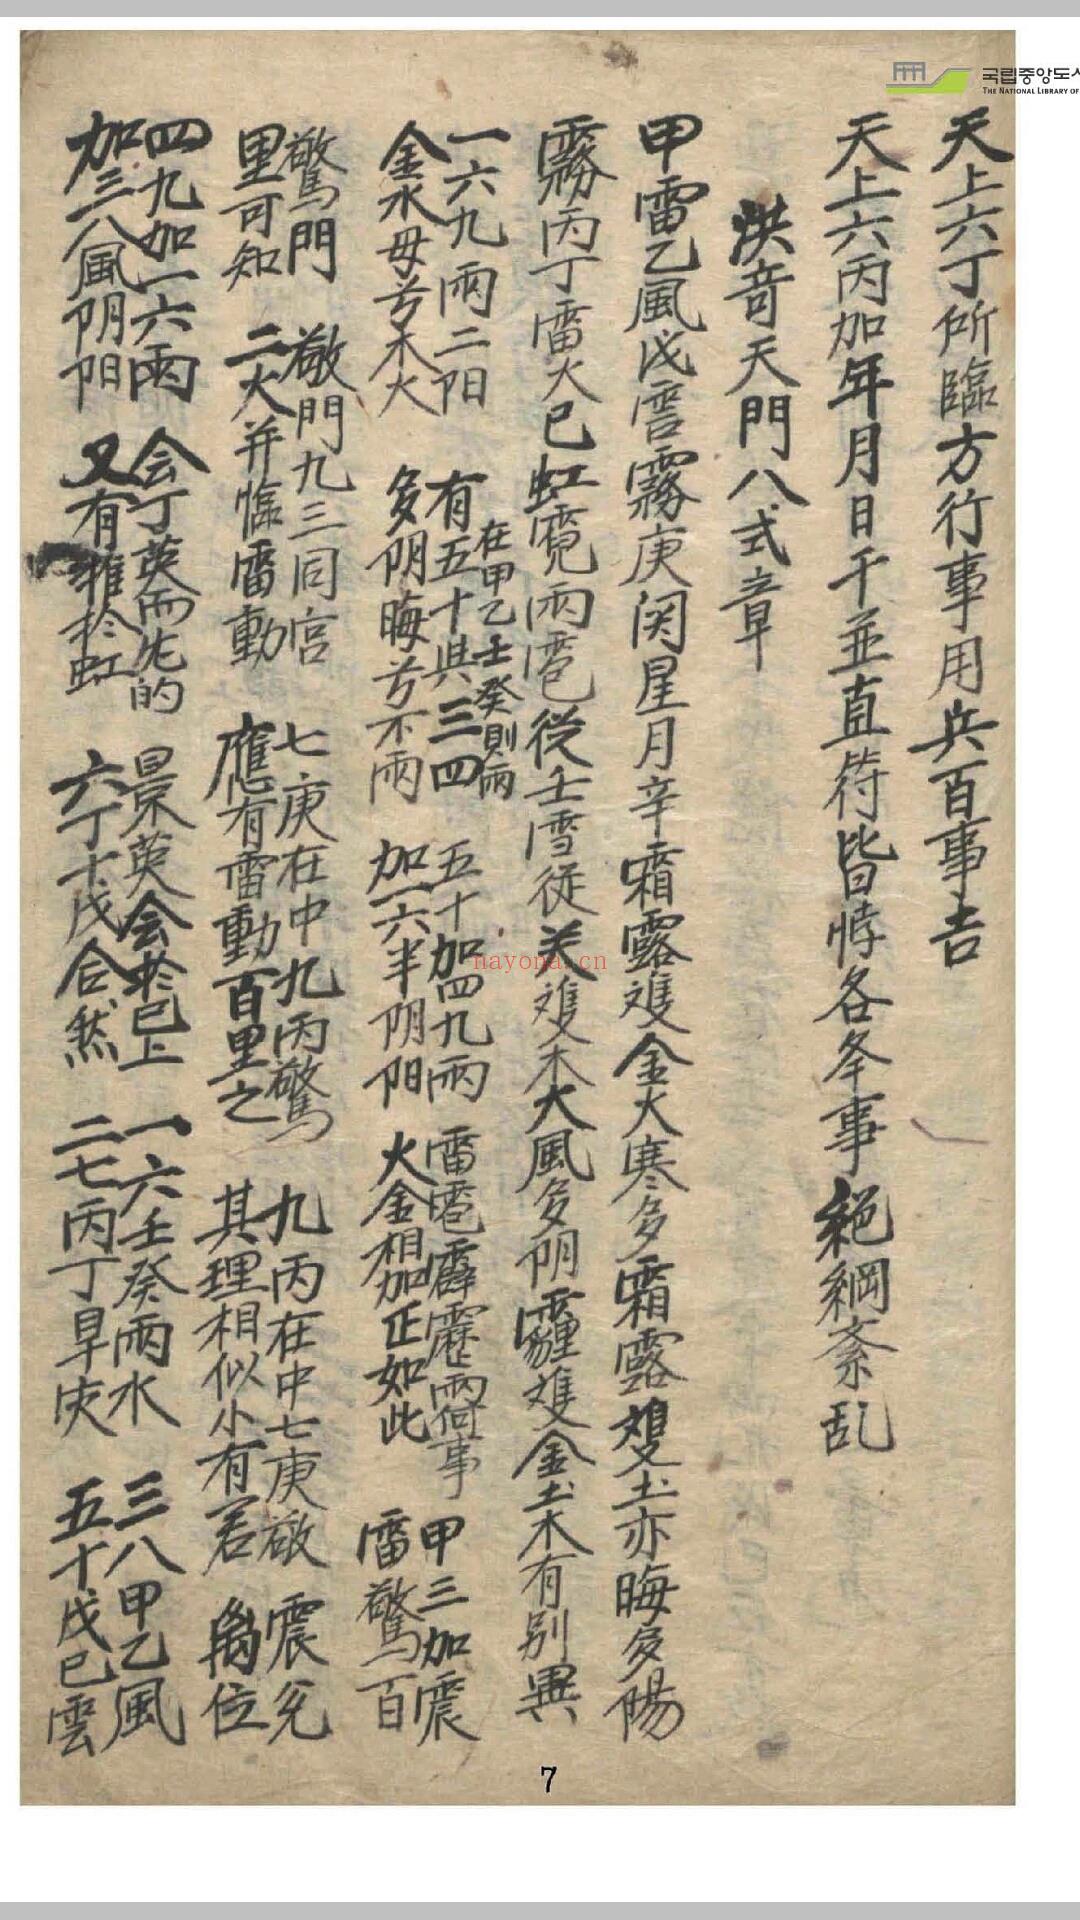 국립중앙도서
THE NATIONAL LIBRARY OF
天上六丁所臨方行事用兵百事吉
天上六丙加年月日干並直符皆悖各夆事 絕綱紊乱
洪奇天門八式章
甲雷乙風戊雲霧庚関星月辛霜露雙金大寒多霜露雙土亦晦多陽
霧丙丁雷火已虹霓雨雹從壬雪従癸雙木大風多阴霾雙金土木有別異
一六九雨二阳 有五十與三四 五十加四九雨 雷雹霹靂雨何事 甲三加震
在甲乙壬癸則雨
金水毋兮木火 多阴晦兮不雨 加一六半阴阳 火金相加正如此 雷驚百
驚門 敬門九三同宮 七庚在中九丙驚 九丙在中七庚敬 震兌
里可知 二火并臨雷動 應有雷動百里之 其理相似小有君 离位
四九加一六雨 会丁英而先的 景英会於已上 一六壬癸雨水 三八甲乙風
加三八風阴阳 又有雜於虹 六丁十戊合然 二七丙丁旱灾 五十戊已雲
nayona.cn
7